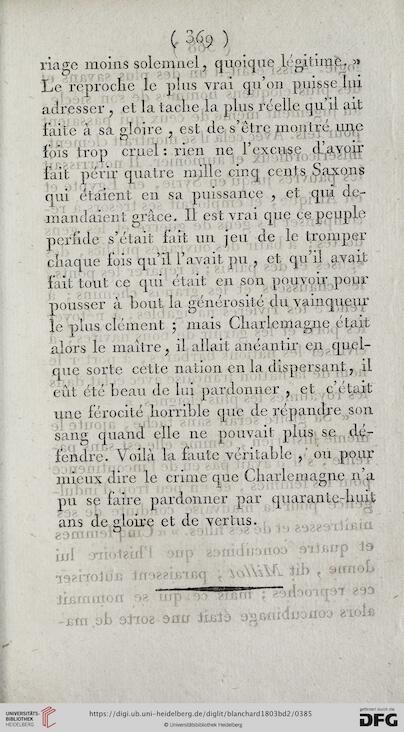 ( 369 )
riage moins solemnel, quoique légitime. »
Le reproche le plus vrai qu'on puisse lui
adresser, et la tache la plus réelle qu'il ait
faite à sa gloire, est de s'être montré une
fois trop cruel : rien ne l'excuse d'avoir
fait périr quatre mille cinq cents Saxons
qui étaient en sa puissance, et qui de-
mandaient grâce. Il est vrai que ce peuple
perfide s'était fait un jeu de le tromper
chaque fois qu'il l'avait pu, et qu'il avait
fait tout ce qui était en son pouvoir pour
pousser à bout la générosité du vainqueur
le plus clément ; mais Charlemagne était
alors le maître, il allait anéantir en quel-
que sorte cette nation en la dispersant, il
eût été beau de lui pardonner, et c'était
une férocité horrible que de répandre son
sang quand elle ne pouvait plus se dé-
fendre. Voilà la faute véritable, ou pour
mieux dire le crime que Charlemagne n'a
pu se faire pardonner par quarante-huit
ans de gloire et de vertus.
UNIVERSITÄTS-
BIBLIOTHEK
HEIDELBERG
https://digi.ub.uni-heidelberg.de/diglit/blanchard1803bd2/0385
© Universitätsbibliothek Heidelberg
gefördert durch die
DFG